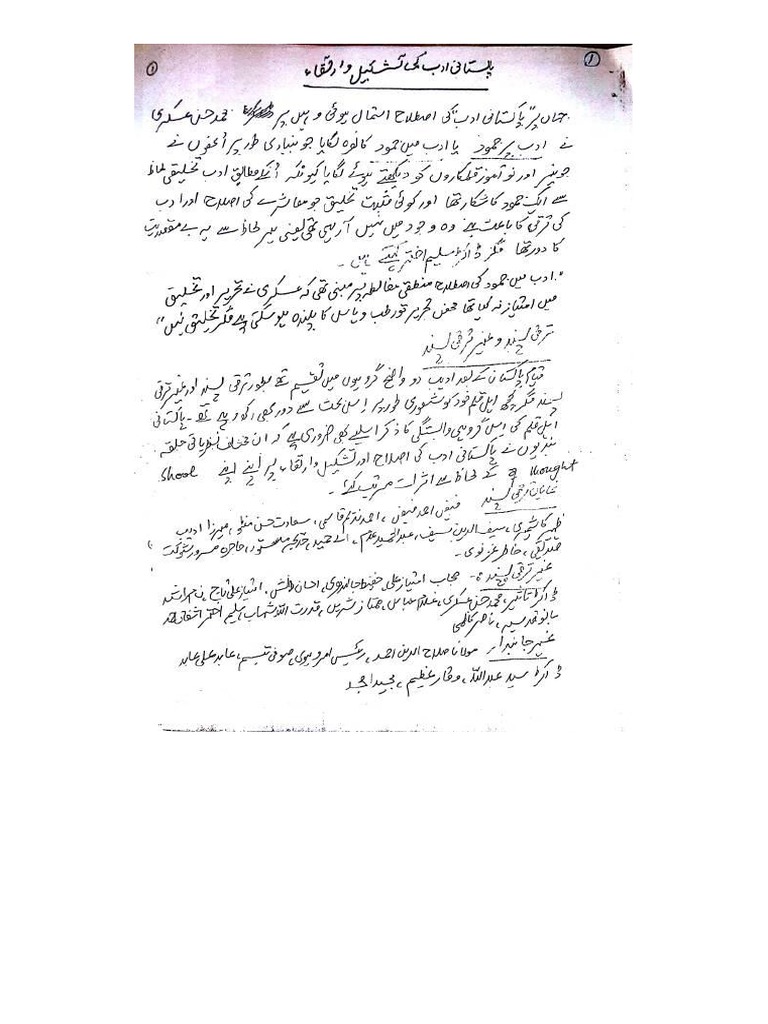 پاکستانی ادب کی تشکیل و ارتقاء
جہاں پر "پاکستانی ادب" کی اصطلاح استمال ہوئی وہیں پر محمد حسن عسکری
نے ادب پر جمود یا ادب میں جمود کا نعرہ لگایا جو بنیادی طور پر اُنھوں نے
جونیئر اور نو آموز قلمکاروں کو دیکھتے ہوئے لگایا کیونکہ اُنکے مطابق ادب تخلیقی لحاظ
سے ایک جمود کا شکار تھا اور کوئی مثبت تخلیق جو معاشرے کی اصلاح اور ادب
کی ترقی کا باعث بنے وہ وجود میں نہیں آ رہی تھی یعنی ہر لحاظ سے یہ بے مقصدیت
کا دور تھا مگر ڈاکٹر سلیم اختر کہتے ہیں۔
"ادب میں جمود کی اصطلاح منطقی مغالطہ پر مبنی تھی کہ عسکری نے تحریر اور تخلیق
میں امتیاز نہ کیا تھا محض تحریر تو رطب و یابس کا پلندہ ہو سکتی ہے مگر تخلیق نہیں"
ترقی پسند و غیر ترقی پسند
قیام پاکستان کے بعد ادیب دو واضح گروہوں میں تقسیم تھے بطور ترقی پسند اور غیر ترقی
پسند مگر کچھ اہل قلم خود کو شعوری طور پر اس بحث سے دور بھی رکھ رہے تھے۔ پاکستانی
اہل قلم کی اس گروہی وابستگی کا ذکر اسلیے بھی ضروری ہے کہ ان مختلف نظریاتی حلقہ
بندیوں نے پاکستانی ادب کی اصلاح اور تشکیل و ارتقاء پر اپنے اپنے Shool
of thought کے لحاظ سے اثرات مرتب کیے۔
نمایاں ترقی پسند فیض احمد فیض، احمد ندیم قاسمی، سعادت حسن منٹو، میرزا ادیب
ظہیر کاشمیری، سیف الدین سیف، عبدالحمید عدم، اے حمید، خدیجہ مستور، حاجرہ مسرور، شوکت
صدیقی، خاطر غزنوی۔
غیر ترقی پسند:- حجاب امتیاز علی، حفیظ جالندھری، احسان دانش، امتیاز علی تاج، ن م راشد
ڈاکٹر تاثیر، محمد حسن عسکری، غلام عباس، ممتاز شیریں، قدرت اللہ شہاب، سلیم احمد، اشفاق احمد
بانو قدسیہ، ناصر کاظمی
غیر جانبدار مولانا صلاح الدین احمد، رئیس امروہوی، صوفی تبسم، عابد علی عابد
ڈاکٹر سید عبداللہ، وقار عظیم، مجید امجد